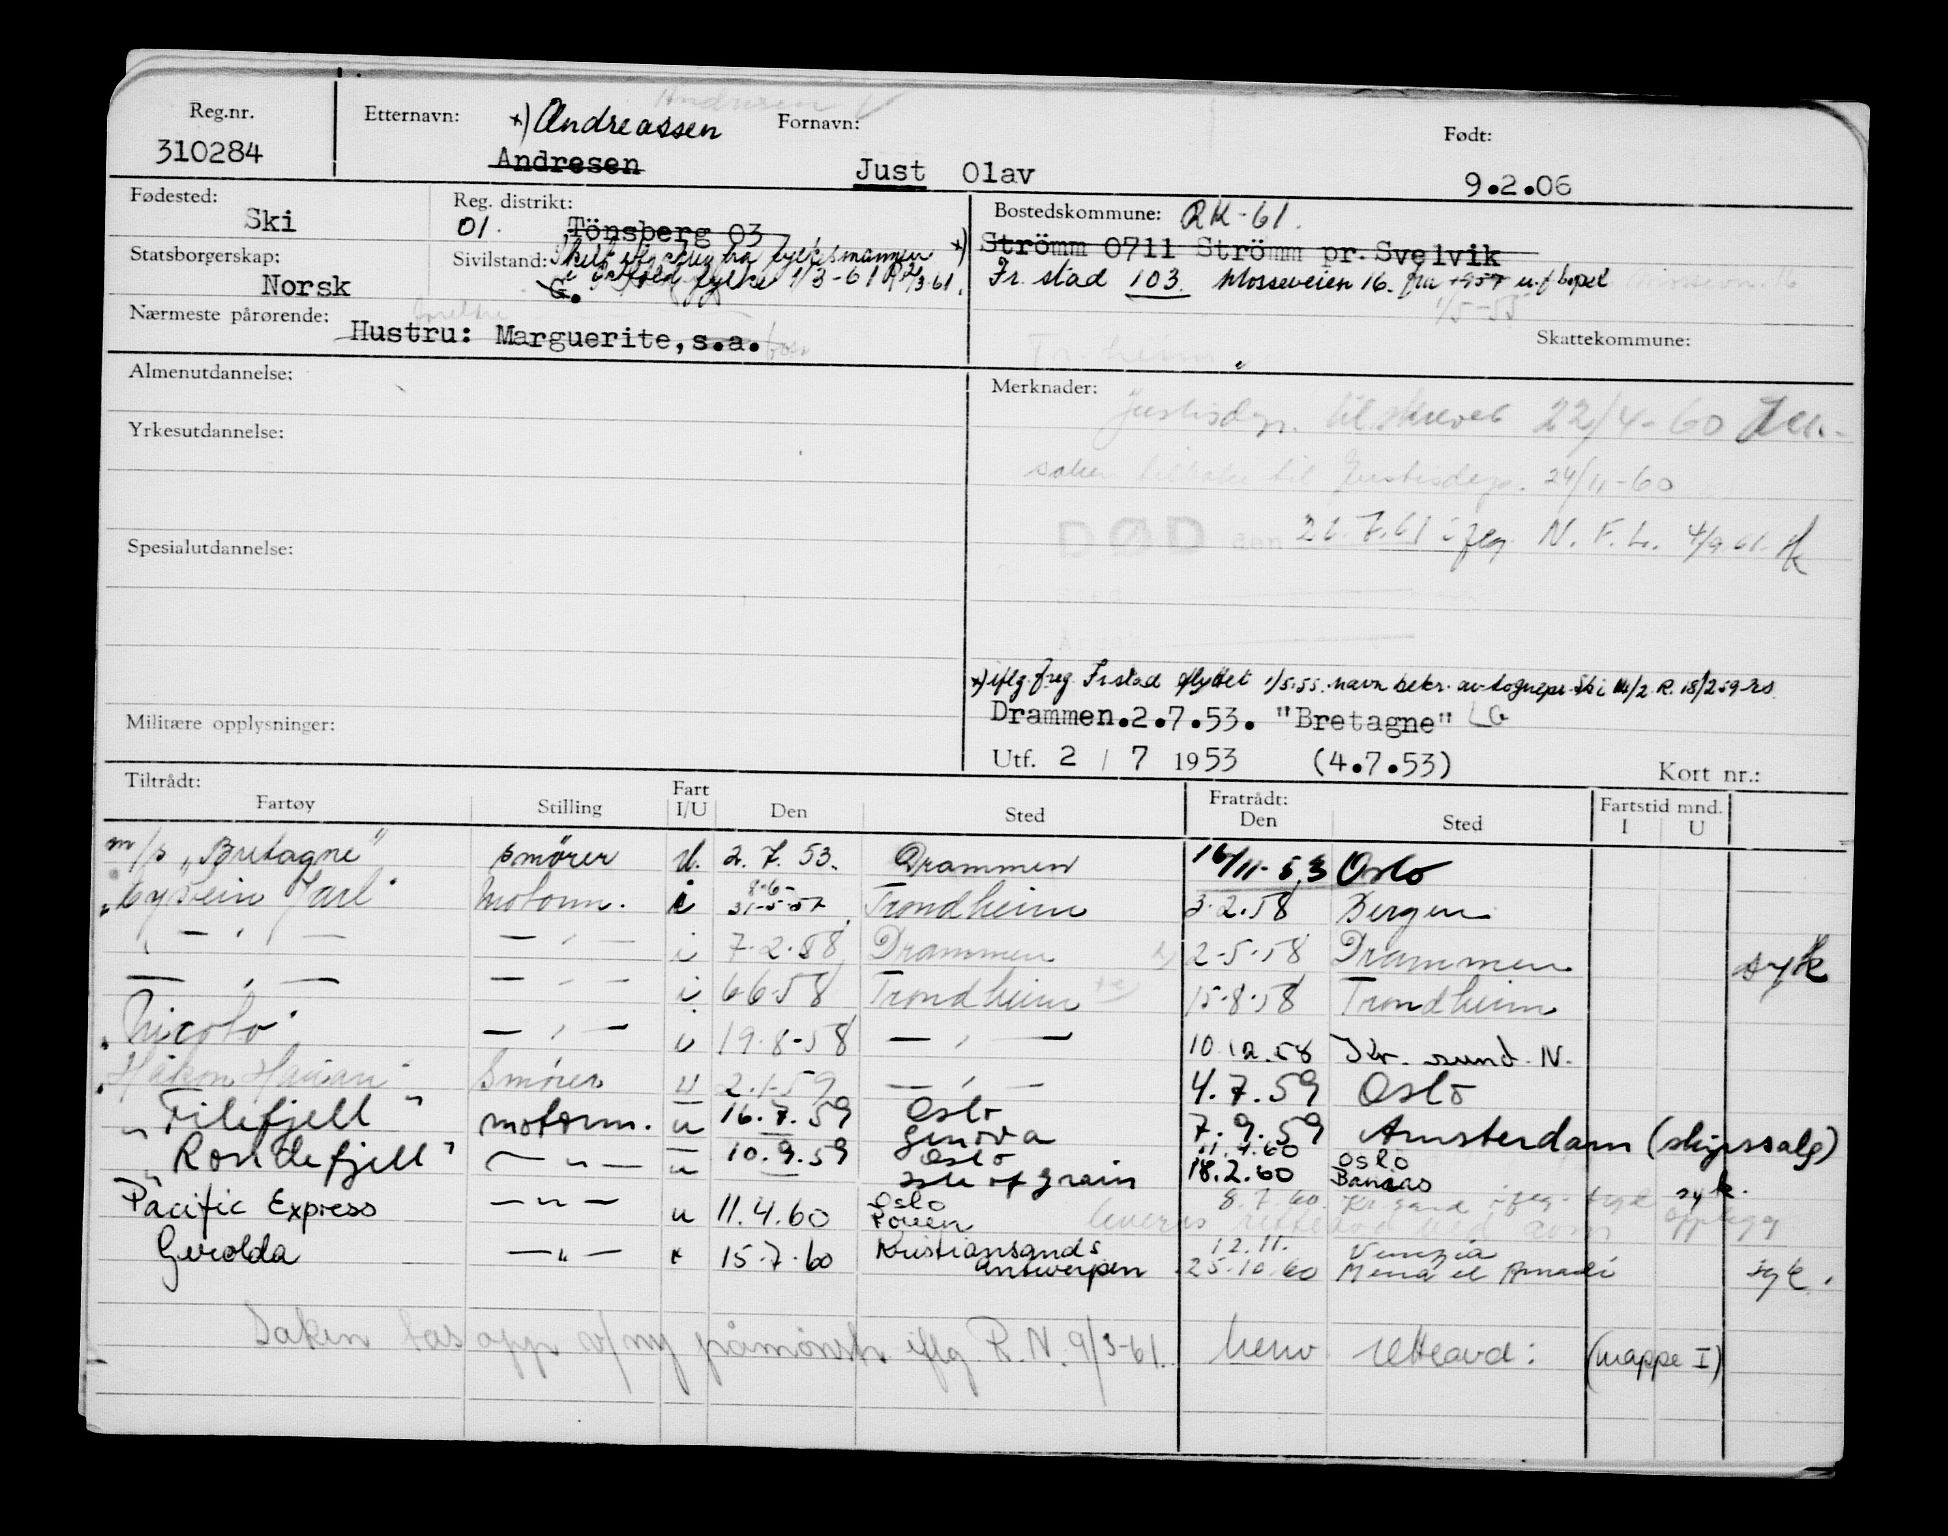 Andresen
Reg.nr. Etternavn: x) Andreassen Fornavn: Født:
310284 Andresen Just Olav 9.2.06
Fødested: Ski Reg. distrikt: 01. Tönsberg 03 Bostedskommune: RK-61.
Statsborgerskap: Norsk Sivilstand: G. Skilt iflg. fra fylkesmannen x) Strömm 0711 Strömm pr. Svelvik
i Østfold fylke 1/3-61 Fr.stad 103. Mosseveien 16. fra 1957 u.f bopel
1/5-55
Nærmeste pårørende: Hustru: Marguerite, s.a. Skattekommune:
Tr.heim
Almenutdannelse: Merknader:
Justisdep. tilskrevet 22/4-60
Yrkesutdannelse:
saken tilbake til Justisdep. 24/11-60
Spesialutdannelse: DØD den 26.7.61 iflg. N. F. L. 4/9 61.
Sted
Årsak
x) iflg. freg. Fr.stad flyttet 1/5.55. navn bekr. av sognepr. Ski R. 18/2 59
Militære opplysninger: Drammen.2.7.53. "Bretagne" LG
Utf. 2 / 7 1953 (4.7.53) Kort nr.:
Tiltrådt: Fratrådt: Fartstid mnd.
Fartøy Stilling Fart I/U Den Sted Den Sted I U
m/s "Bretagne" smører U. 2.7.53. Drammen 16/11-53 Oslo
"Øystein Jarl" Motorm. i 8-6- 31-5-57 Trondheim 3.2.58 Bergen
" — " — — " — i 7.2.58 Drammen 2-5-58 Drammen syk
— " — — " — i 6658 Trondheim 15-8-58 Trondheim
"Nicoto" — " — i 19.8-58 — " — 10.12.58 Kr.sund. N.
"Håkon Hauan" Smører u 2.1-59 — " — 4.7.59 Oslo
"Filefjell" motorm. u 16.7.59 Oslo Genova 7.9.59 Amsterdam (skipssalg)
"Rondefjell" — " — u 10.9.59 Oslo Isle of grain 11.4.60 18.2.60 Oslo Banias syk.
Pacific Express — " — u 11.4.60 Oslo 8.7.60 Kr.sand iflg.
Gerolda — " — 15.7.60 Kristiansand S. Antwerpen 12.11. 25.10.60 Venezia Mena el Amadi syk.
Saken tas opp v/ny påmønstr. iflg. R.N. 9/3-61. henv. retteavd: (mappe I)